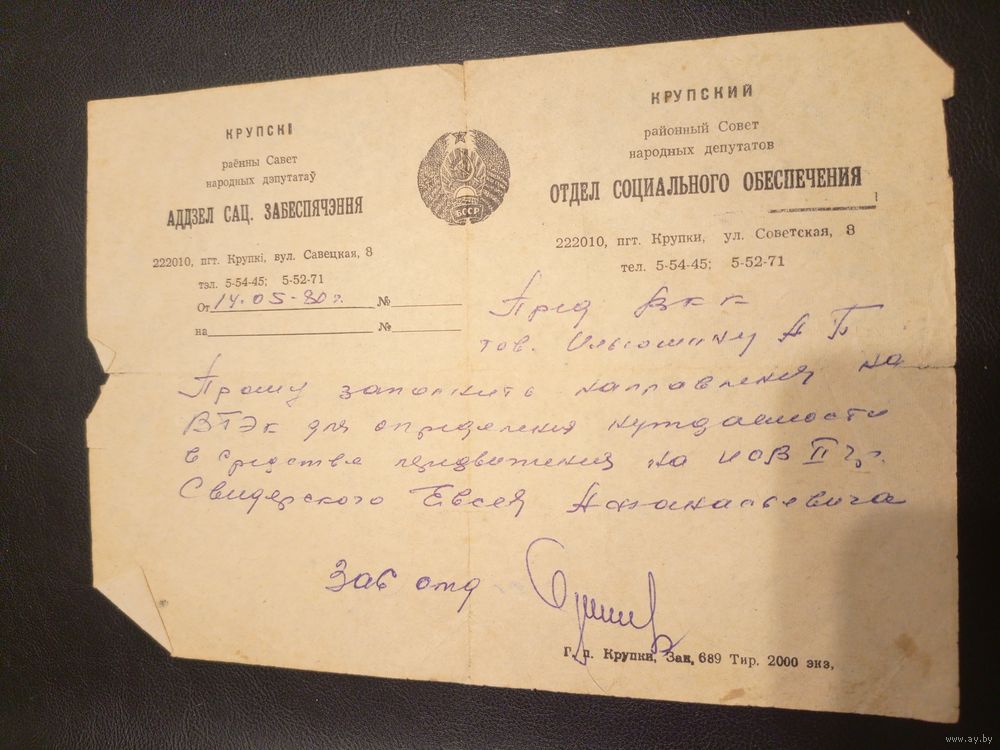 КРУПСКІ
раённы Савет
народных дэпутатаў
АДДЗЕЛ САЦ. ЗАБЕСПЯЧЭННЯ
222010, пгт. Крупкі, вул. Савецкая, 8
тэл. 5-54-45; 5-52-71
От 14.05-90 г. №
на №
БССР
КРУПСКИЙ
районный Совет
народных депутатов
ОТДЕЛ СОЦИАЛЬНОГО ОБЕСПЕЧЕНИЯ
222010, пгт. Крупки, ул. Советская, 8
тел. 5-54-45; 5-52-71
Пред ВКК
тов. А П
Прошу заполнить направления на
ВТЭК для определения нуждаемости
в средстве передвижения на ИОВ II гр.
Свидерского Евсея Афанасьевича
Зав отд
Г. п. Крупки, Зак. 689 Тир. 2000 экз,
www.ay.by